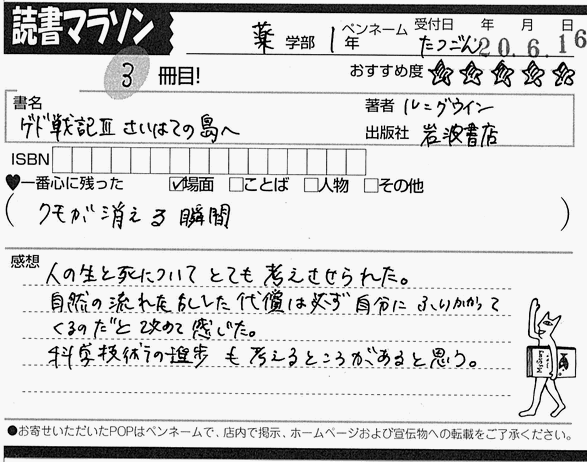 読書マラソン
薬 学部 1 年 ペンネーム たつごん 受付日 年 月 日 20.6.16
3 冊目! おすすめ度 ★★★★★
書名 ゲド戦記Ⅲ さいはての島へ
著者 ル=グウィン
出版社 岩波書店
ISBN
♥一番心に残った ☑場面 □ことば □人物 □その他
( クモが消える瞬間 )
感想
人の生と死について とても 考えさせられた。
自然の流れを乱した代償は必ず自分に ふりかかって
くるのだと改めて感じた。
科学技術の進歩 も 考えるところがあると思う。
●お寄せいただいたPOPはペンネームで、店内で掲示、ホームページおよび宣伝物への転載をご了承ください。